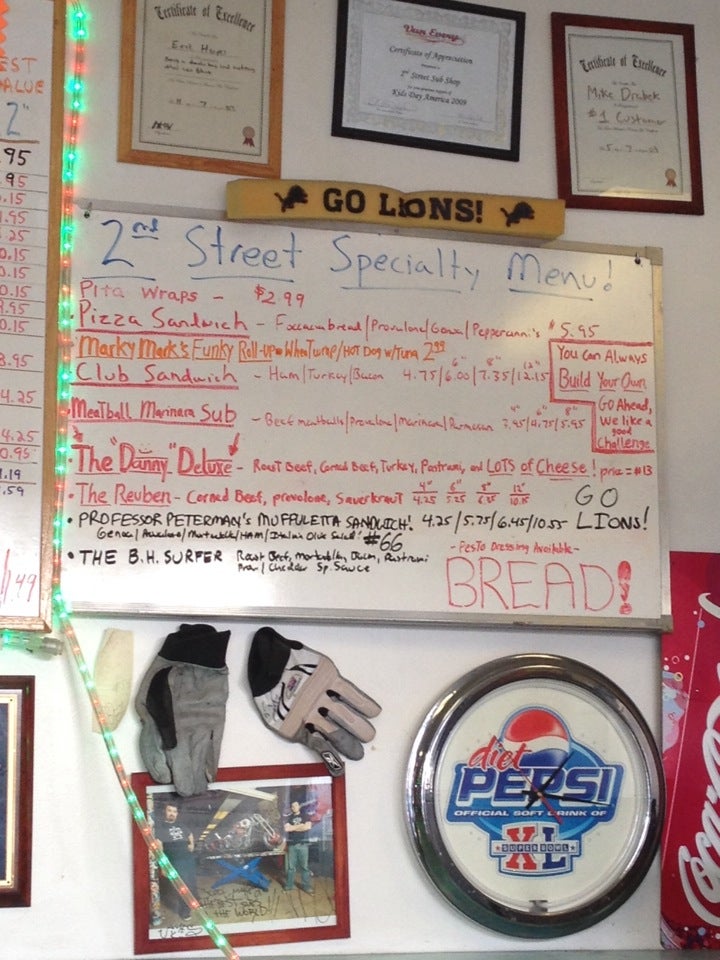 Certificate of Excellence
Certificate of Appreciation
2nd Street Sub Shop
Kids Day America 2009
Certificate of Excellence
Mike Drabek
#1 Customer
GO LIONS!
EST
ALUE
2"
.95
.95
.15
.95
.25
0.15
0.15
0.15
9.95
0.15
8.95
4.25
4.25
0.95
.19
.59
.49
2nd Street Specialty Menu!
Pita Wraps - $2.99
• Pizza Sandwich - /Provalone/ $5.95
• Marky Mark's Funky Roll-up w/Hot Dog w/Tuna 2.99
• Club Sandwich - Ham/Turkey/Bacon 4.75/6.00/7.35/12.15
6" 8" 12"
You Can Always
Build Your Own
GO Ahead,
We like a
good
Challenge
• Meatball Marinara Sub - Beef meatballs/Provalone/Marinara/Parmesan 3.95/4.75/5.95
4" 6" 8"
• The "Danny" Deluxe - Roast Beef, Corned Beef, Turkey, Pastrami, and LOTS of Cheese! price = $13
• The Reuben - Corned Beef, provalone, Sauerkraut 4" 4.25 6" 5.25 8" 6.35 12" 10.15
GO
LIONS!
• PROFESSOR PETERMAN'S MUFFULETTA SANDWICH! 4.25/5.75/6.45/10.55
Genoa/ /HAM/Italian Olive Salad! #66
• THE B.H. SURFER Roast Beef, Bacon, Pastrami
Prov/Chedder Sp. Sauce
- Pesto Dressing Available -
BREAD!
diet
PEPSI
OFFICIAL SOFT DRINK OF
SUPER BOWL
XL
THE WORLD!
Coca-Cola